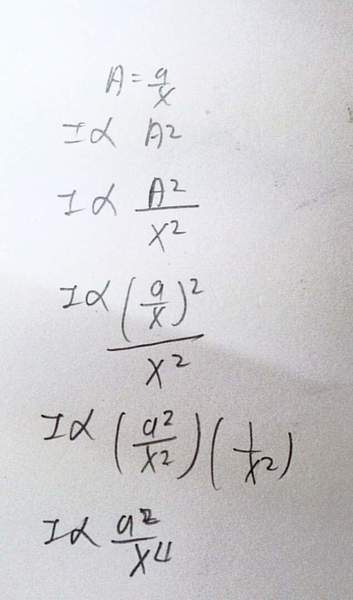 A = a/x
I ∝ A²
I ∝ A²/x²
I ∝ (a/x)²/x²
I ∝ (a²/x²)(1/x²)
I ∝ a²/x⁴